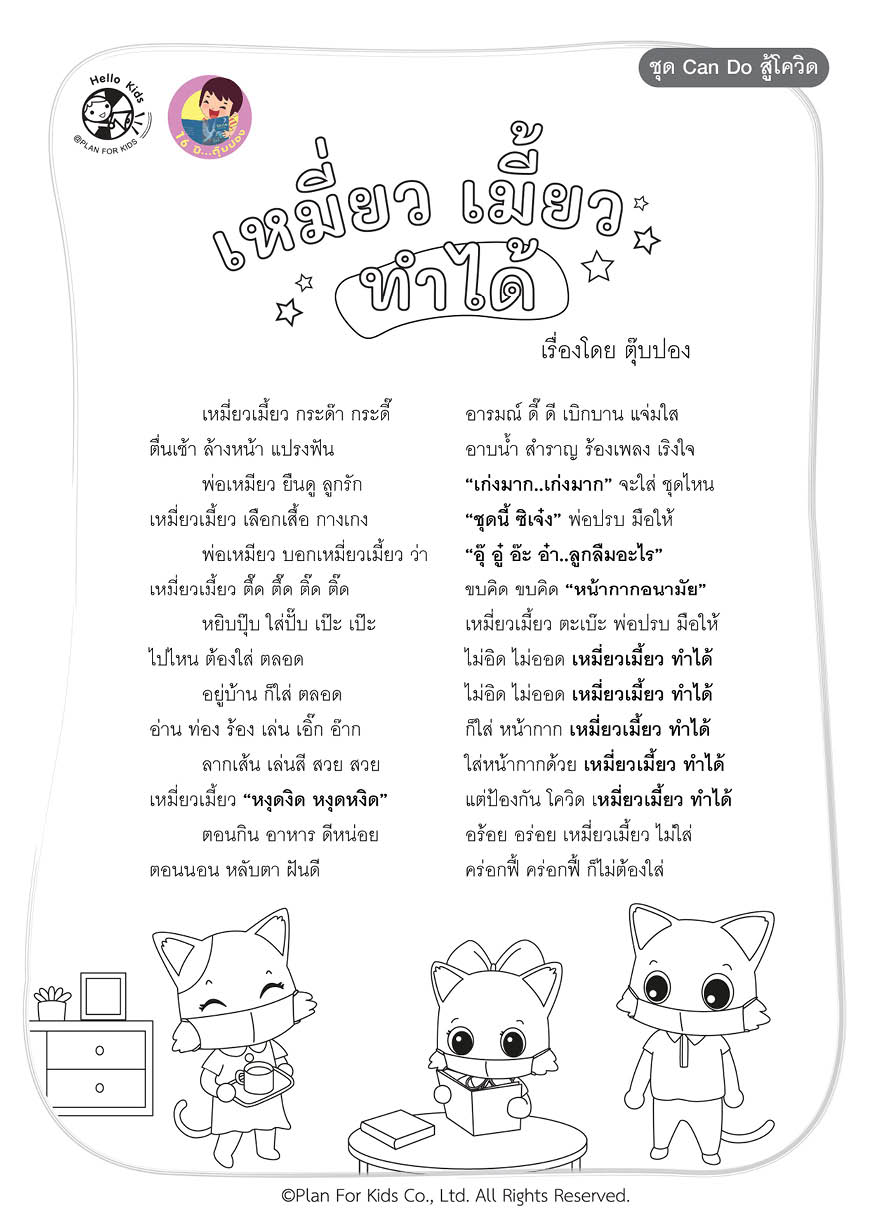 ชุด Can Do สู้โควิด
Hello Kids
@PLAN FOR KIDS
16 ปี...ตุ๊บปอง
เหมี่ยว เมี้ยว
ทำได้
เรื่องโดย ตุ๊บปอง
เหมี่ยวเมี้ยว กระด๊า กระดี๊ อารมณ์ ดี๊ ดี เบิกบาน แจ่มใส
ตื่นเช้า ล้างหน้า แปรงฟัน อาบน้ำ สำราญ ร้องเพลง เริงใจ
พ่อเหมียว ยืนดู ลูกรัก “เก่งมาก..เก่งมาก” จะใส่ ชุดไหน
เหมี่ยวเมี้ยว เลือกเสื้อ กางเกง “ชุดนี้ ซิเจ๋ง” พ่อปรบ มือให้
พ่อเหมียว บอกเหมี่ยวเมี้ยว ว่า “อุ๊ อู๋ อ๊ะ อ๋า..ลูกลืมอะไร”
เหมี่ยวเมี้ยว ตื๊ด ตื๊ด ติ๊ด ติ๊ด ขบคิด ขบคิด “หน้ากากอนามัย”
หยิบปุ๊บ ใส่ปั๊บ เป๊ะ เป๊ะ เหมี่ยวเมี้ยว ตะเบ๊ะ พ่อปรบ มือให้
ไปไหน ต้องใส่ ตลอด ไม่อิด ไม่ออด เหมี่ยวเมี้ยว ทำได้
อยู่บ้าน ก็ใส่ ตลอด ไม่อิด ไม่ออด เหมี่ยวเมี้ยว ทำได้
อ่าน ท่อง ร้อง เล่น เอิ๊ก อ๊าก ก็ใส่ หน้ากาก เหมี่ยวเมี้ยว ทำได้
ลากเส้น เล่นสี สวย สวย ใส่หน้ากากด้วย เหมี่ยวเมี้ยว ทำได้
เหมี่ยวเมี้ยว “หงุดงิด หงุดหงิด” แต่ป้องกัน โควิด เหมี่ยวเมี้ยว ทำได้
ตอนกิน อาหาร ดีหน่อย อร้อย อร่อย เหมี่ยวเมี้ยว ไม่ใส่
ตอนนอน หลับตา ฝันดี คร่อกฟี้ คร่อกฟี้ ก็ไม่ต้องใส่
©Plan For Kids Co., Ltd. All Rights Reserved.